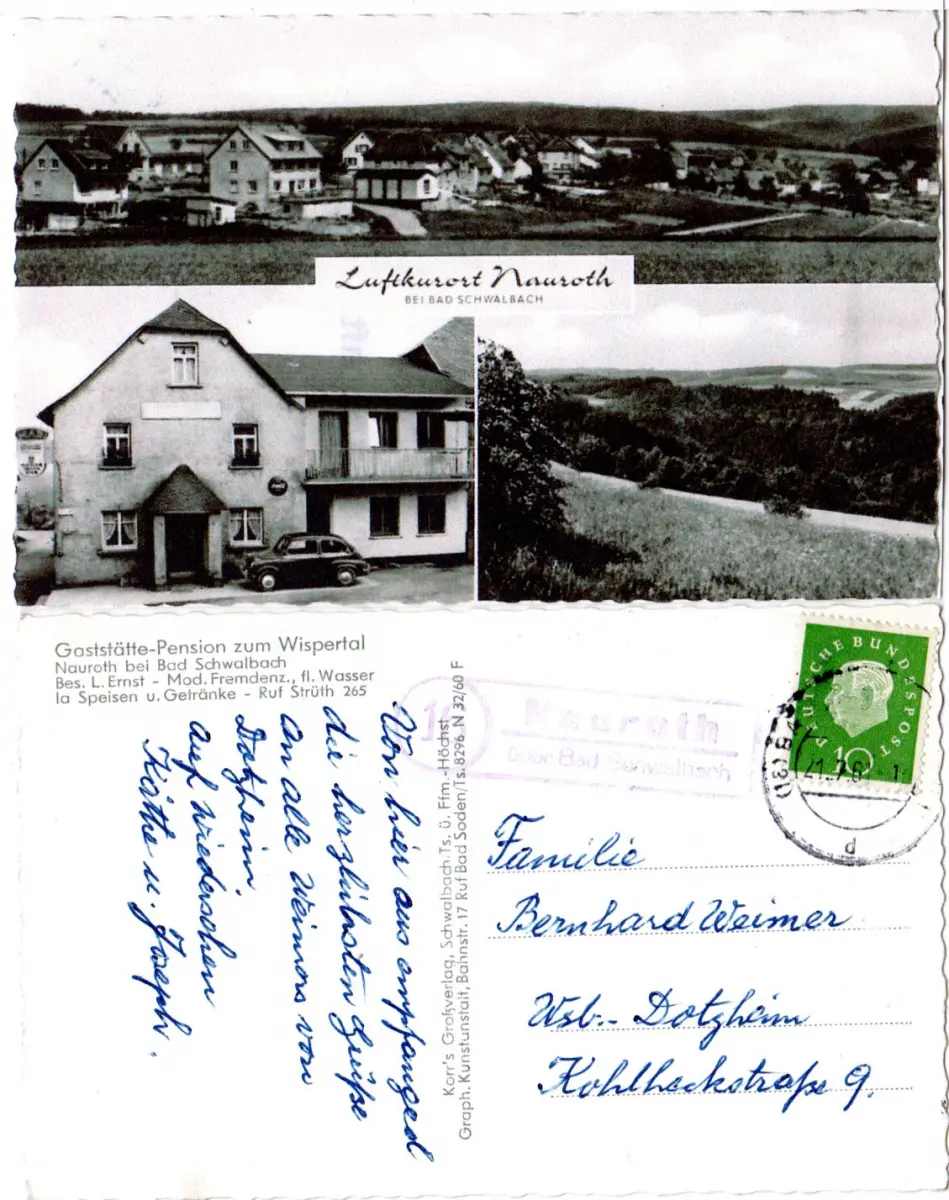 Luftkurort Nauroth
BEI BAD SCHWALBACH
Gaststätte-Pension zum Wispertal
Nauroth bei Bad Schwalbach
Bes. L. Ernst - Mod. Fremdenz., fl. Wasser
Ia Speisen u. Getränke - Ruf Strüth 265
Von hier aus empfanged
die herzlibsten Grüße
an alle Weimers von
Dotzheim.
auf Wiedersehen
Käthe u. Joseph.
Korr's Großverlag, Schwalbach/Ts. ü. Ffm.-Höchst
Graph. Kunstunstalt, Bahnstr. 17 Ruf Bad Soden/Ts. 8296 N 32/60 F
16 Nauroth
über Bad Schwalbach
DEUTSCHE BUNDESPOST
10
21.7.6
Familie
Bernhard Weimer
Wsb.- Dotzheim
Kohlheckstraße 9.